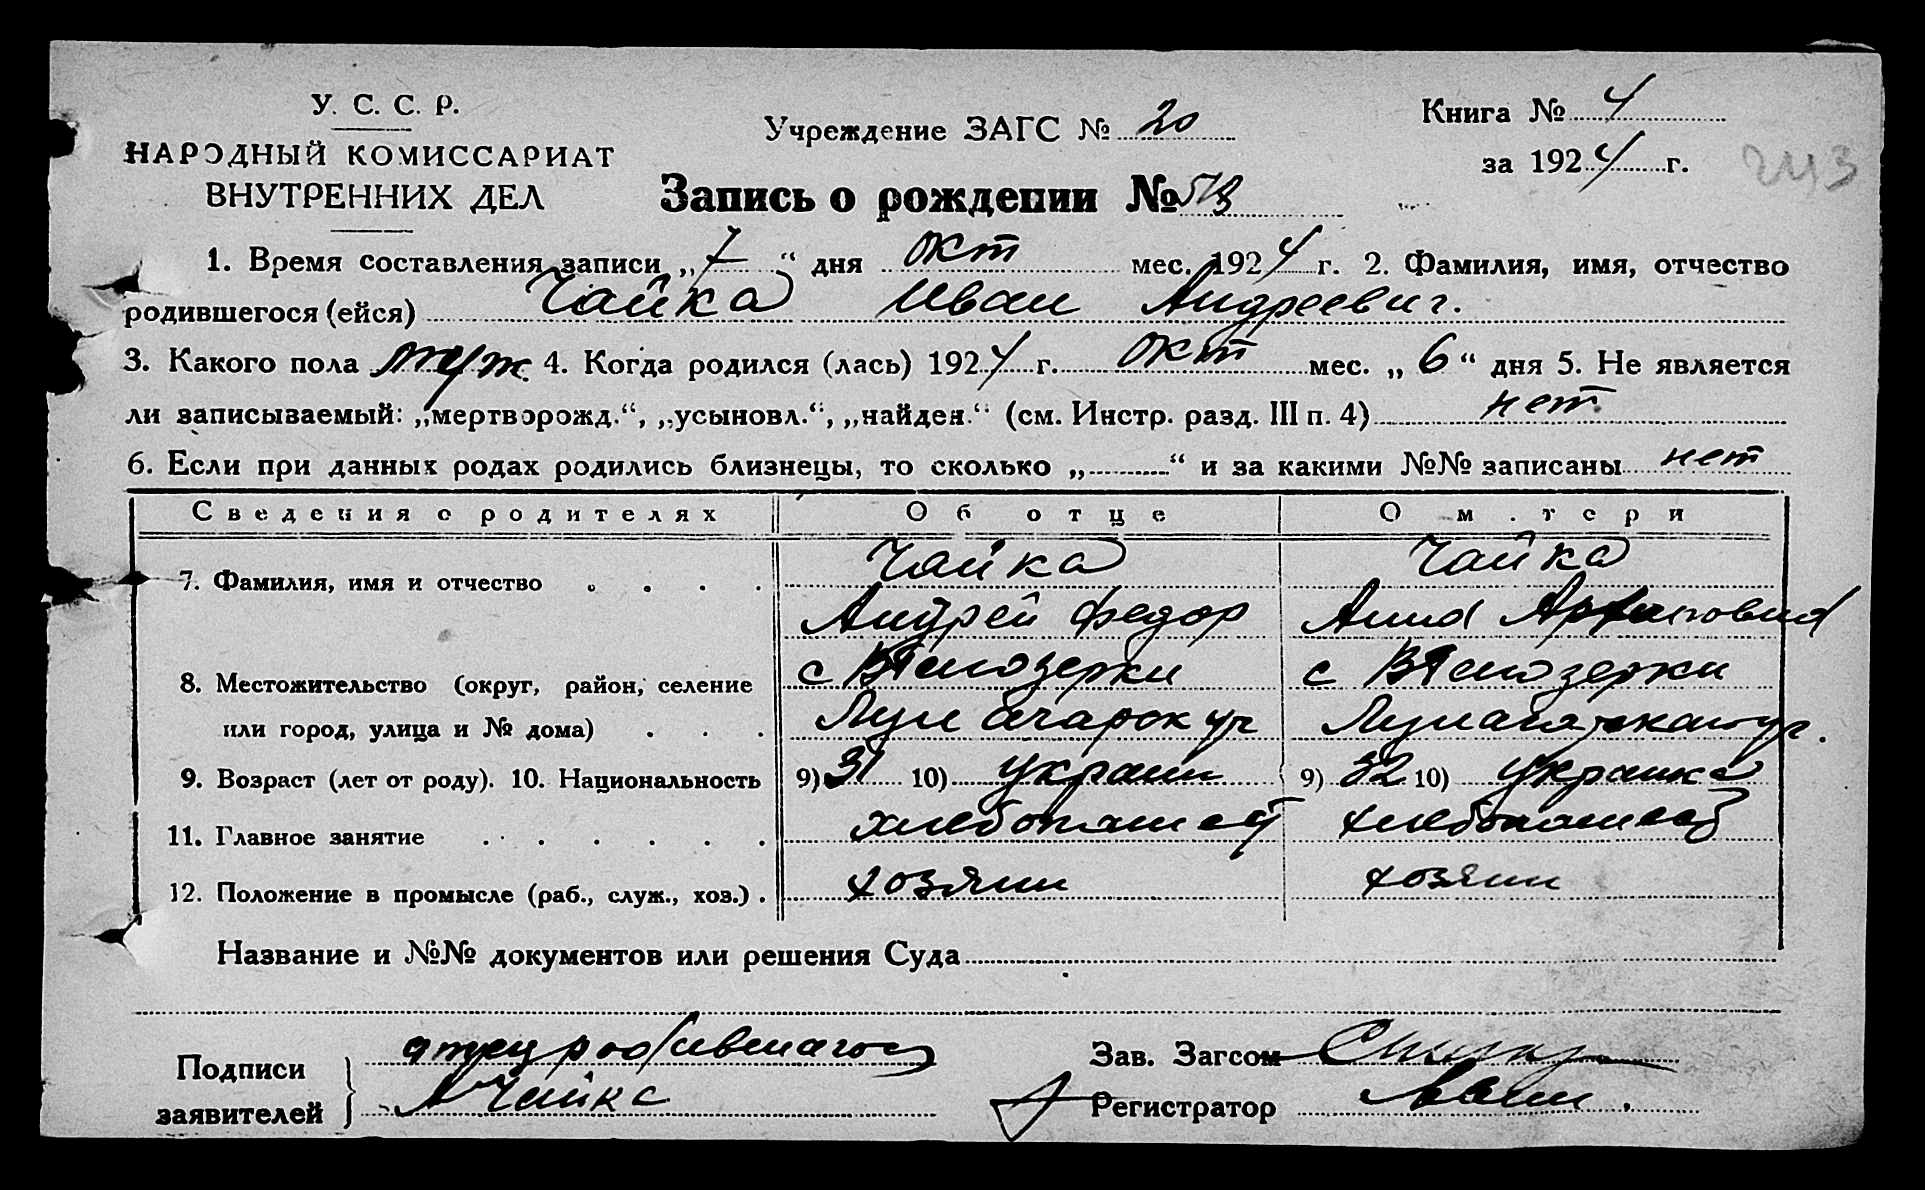 У. С. С. Р.
НАРОДНЫЙ КОМИССАРИАТ
ВНУТРЕННИХ ДЕЛ
Учреждение ЗАГС № 20
Книга № 4
за 1924 г.
243
Запись о рождении №
1. Время составления записи „7“ дня окт мес. 1924 г. 2. Фамилия, имя, отчество
родившегося (ейся) Чайка Иван Андреевич.
3. Какого пола муж. 4. Когда родился (лась) 1924 г. окт мес. „6“ дня 5. Не является
ли записываемый: „мертворожд.“, „усыновл.“, „найден.“ (см. Инстр. разд. III п. 4) нет
6. Если при данных родах родились близнецы, то сколько „ “ и за какими №№ записаны нет
Сведения о родителях Об отце О матери
7. Фамилия, имя и отчество Чайка Чайка
Андрей Федор Анна
8. Местожительство (округ, район, селение с с
или город, улица и № дома)
9. Возраст (лет от роду). 10. Национальность 9) 31 10) украин 9) 32 10) украинка
11. Главное занятие хлебопашец хлебопашец
12. Положение в промысле (раб., служ., хоз.) хозяин хозяин
Название и №№ документов или решения Суда
Подписи заявителей отец
А Чайка
Зав. Загсом
Регистратор